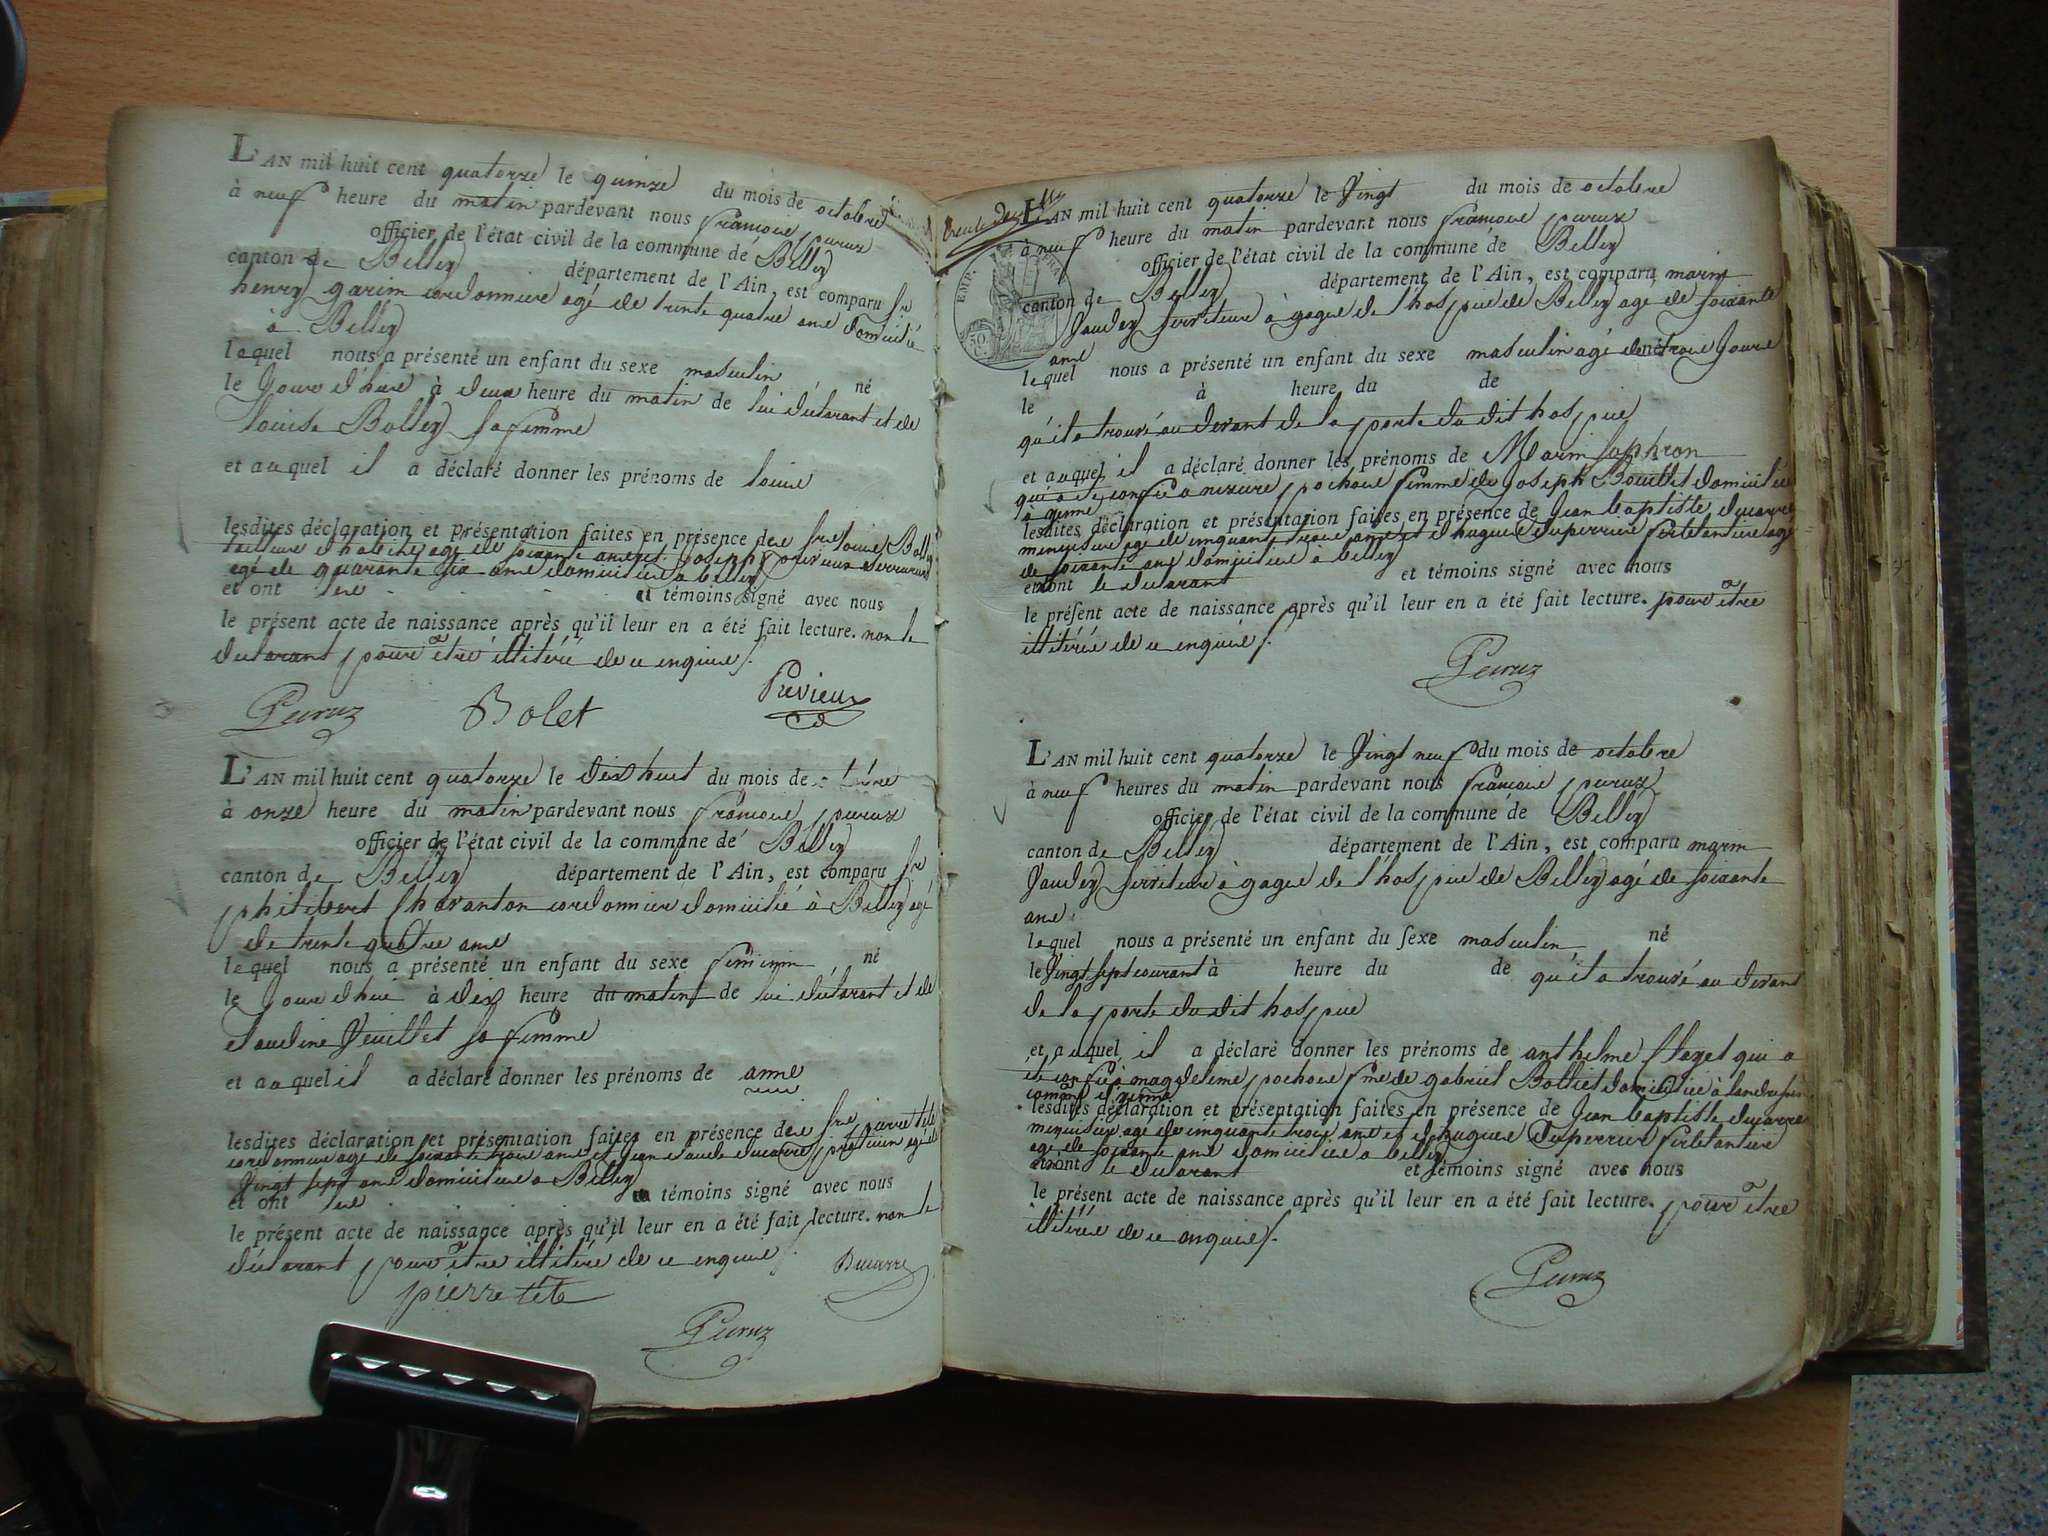 L'AN mil huit cent quatorze le quinze du mois de octobre
à neuf heure du matin pardevant nous francois peruz
officier de l'état civil de la commune de Belley
canton de Belley département de l'Ain, est comparu sr
henry garin cordonnier agé de trente quatre ans domicilié
à Belley
lequel nous a présenté un enfant du sexe masculin né
le jour d'hui à deux heure du matin de lui déclarant et de
louise Bolley sa femme
et auquel il a déclaré donner les prénoms de louis
lesdites déclaration et présentation faites en présence des srs louis
agé de soixante ans et joseph serrurier
agé de quarante six ans domiciliés à belley
et ont les témoins signé avec nous
le présent acte de naissance après qu'il leur en a été fait lecture. non le
déclarant pour être illitéré de ce enquis.
Peruz Bolet Prévieux
L'AN mil huit cent quatorze le dix huit du mois de octobre
à onze heure du matin pardevant nous francois peruz
officier de l'état civil de la commune de Belley
canton de Belley département de l'Ain, est comparu sr
philibert Charanton cordonnier domicilié à Belley agé
de trente quatre ans
lequel nous a présenté un enfant du sexe feminin né
le jour d'hui à dix heure du matin de lui déclarant et de
claudine Veuillet sa femme
et auquel il a déclaré donner les prénoms de anne
lesdites déclaration et présentation faites en présence des srs pierre tété
cordonnier agé de soixante trois ans et jean claude ducarre agé de
vingt sept ans domiciliés à Belley
et ont les témoins signé avec nous
le présent acte de naissance après qu'il leur en a été fait lecture. non le
déclarant pour être illitéré de ce enquis
pierre tété Ducarre
Peruz
EMP.
50 C.
L'AN mil huit cent quatorze le vingt du mois de octobre
à neuf heure du matin pardevant nous francois peruz
officier de l'état civil de la commune de Belley
canton de Belley département de l'Ain, est comparu marin
serviteur à gage de l'hospice de Belley agé de soixante
ans
lequel nous a présenté un enfant du sexe masculin agé de trois jours né
le à heure du de
qu'il a trouvé au devant de la porte du dit hospice
et auquel il a déclaré donner les prénoms de Marin Saphron
qui a été confié à pochoud femme de joseph Bouillet domicilié
à yenne
lesdites déclaration et présentation faites en présence de jean baptiste ducarre
menuisier agé de cinquante trois ans et d'hugues duperrier ferblantier agé
de soixante ans domiciliés à belley
et ont le déclarant et témoins signé avec nous
le présent acte de naissance après qu'il leur en a été fait lecture. pour être
illitérés de ce enquis.
Peruz
L'AN mil huit cent quatorze le vingt neuf du mois de octobre
à neuf heures du matin pardevant nous francois peruz
officier de l'état civil de la commune de Belley
canton de Belley département de l'Ain, est comparu marin
serviteur à gage de l'hospice de Belley agé de soixante
ans
lequel nous a présenté un enfant du sexe masculin né
le vingt sept courant à heure du de qu'il a trouvé au devant
de la porte du dit hospice
et auquel il a déclaré donner les prénoms de anthelme qui a
été confié à magdeleine pochoud fme de gabriel Bolliet domiciliée à
comune d'yenne
lesdites déclaration et présentation faites en présence de jean baptiste ducarre
menuisier agé de cinquante trois ans et d'hugues duperrier ferblantier
agé de soixante ans domiciliés à belley
et ont le déclarant et témoins signé avec nous
le présent acte de naissance après qu'il leur en a été fait lecture. pour être
illitérés de ce enquis.
Peruz